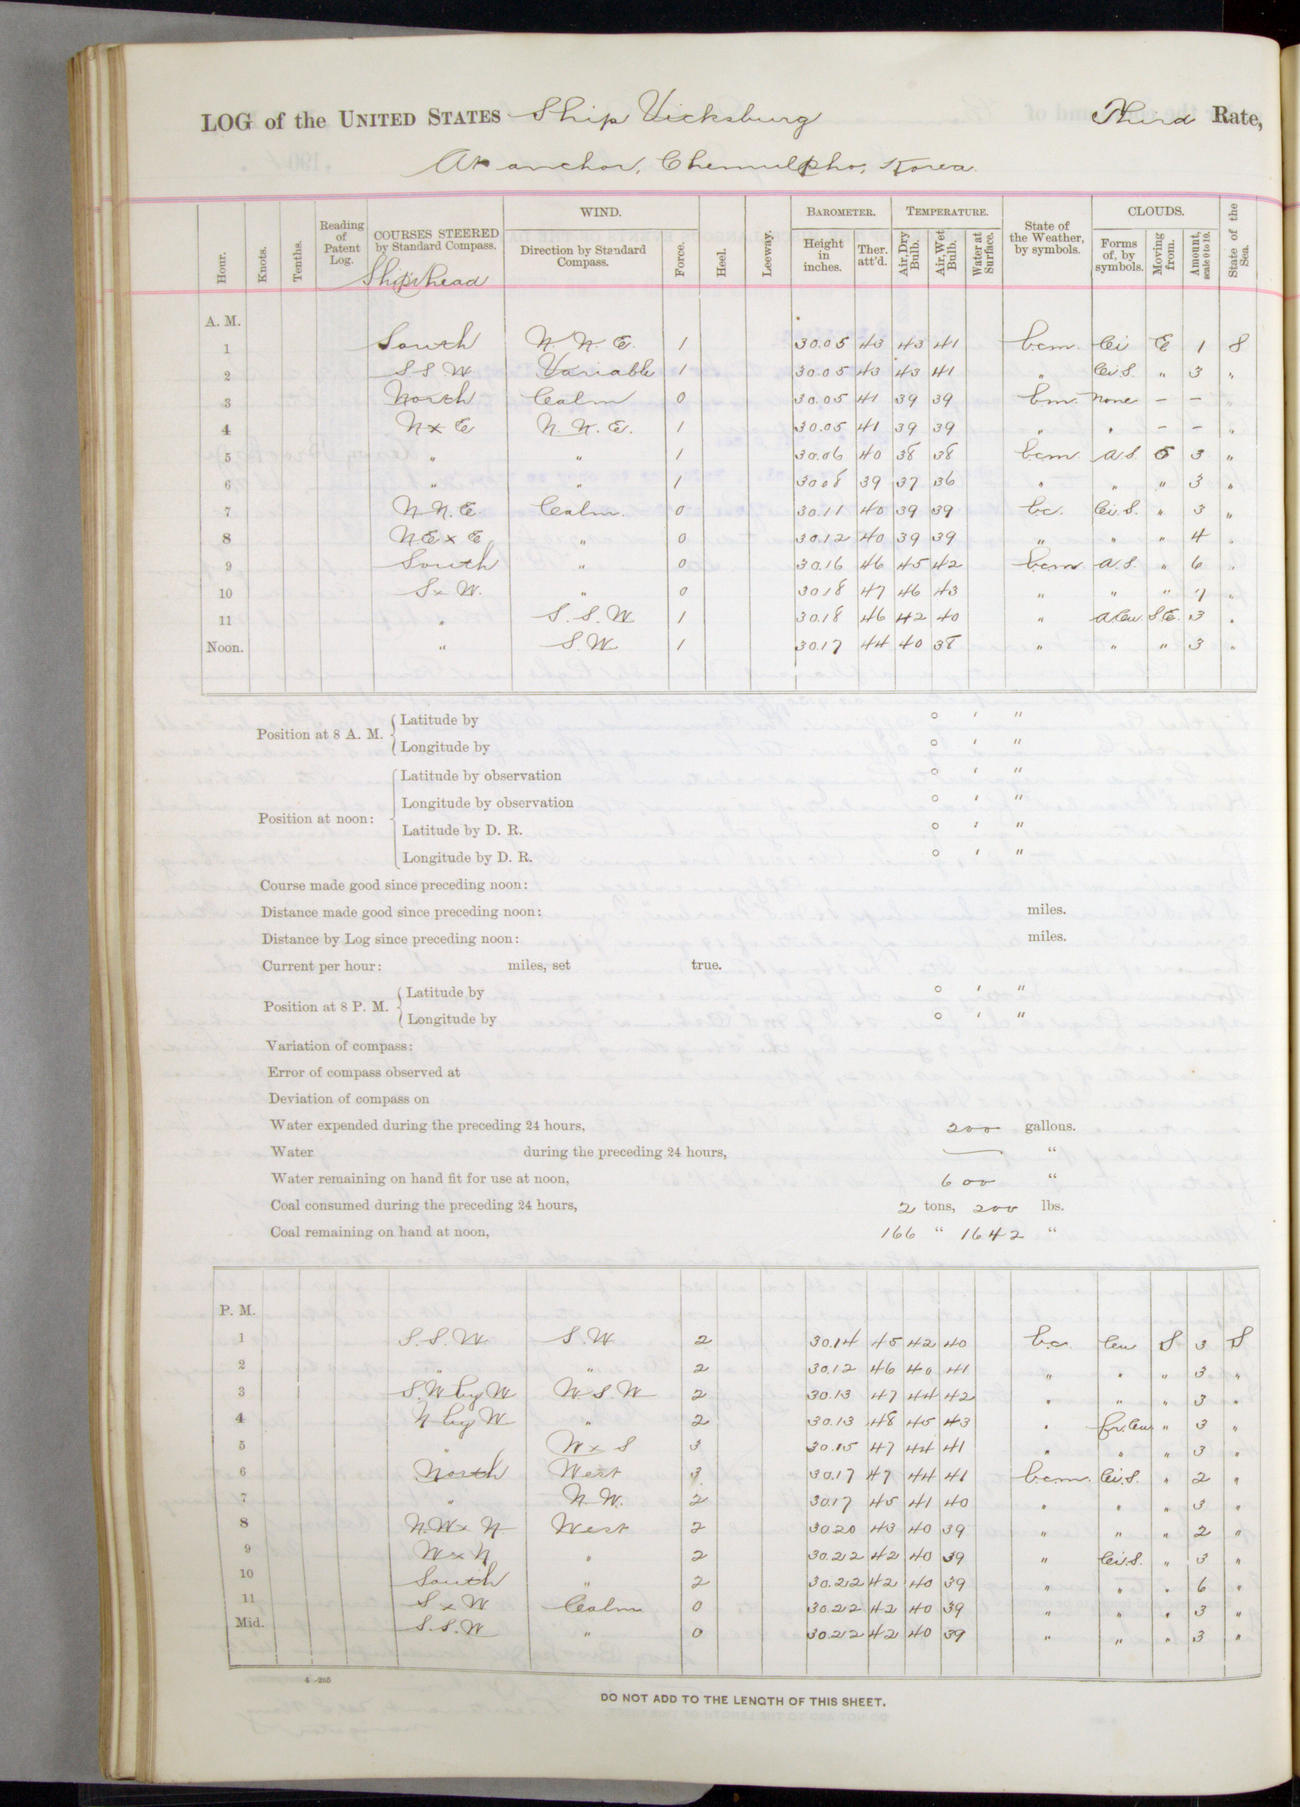 LOG of the UNITED STATES Ship Vicksburg Third Rate,
At anchor, Chemulpho, Korea.
Hour. Knots. Tenths. Reading of Patent Log. COURSES STEERED by Standard Compass. WIND. Direction by Standard Compass. Force. Heel. Leeway. BAROMETER. Height in inches. Ther. att'd. TEMPERATURE. Air, Dry Bulb. Air, Wet Bulb. Water at Surface. State of the Weather, by symbols. CLOUDS. Forms of, by symbols. Moving from. Amount, scale 0 to 10. State of the Sea.
Ship's head
A. M.
1 South N. N. E. 1 30.05 43 43 41 bcm. Ci E 1 S
2 S S. W Variable 1 30.05 43 43 41 " Ci.S. " 3 "
3 North Calm 0 30.05 41 39 39 bm. None – – "
4 N x E N. N. E. 1 30.05 41 39 39 " " – – "
5 " " 1 30.06 40 38 38 bcm A.S. 3 "
6 " " 1 30.08 39 37 36 " " " 3 "
7 N. N. E. Calm. 0 30.11 40 39 39 bc. Ci.S. " 3 "
8 NE x E " 0 30.12 40 39 39 " " " 4 "
9 South " 0 30.16 46 45 42 bcm A.S. " 6 "
10 S x W. " 0 30.18 47 46 43 " " " 7 "
11 " S. S. W 1 30.18 46 42 40 " A.Cu. S.E. 3 "
Noon. " S. W 1 30.17 44 40 38 " " " 3 "
Position at 8 A. M. Latitude by ° ′ ″
Longitude by ° ′ ″
Position at noon: Latitude by observation ° ′ ″
Longitude by observation ° ′ ″
Latitude by D. R. ° ′ ″
Longitude by D. R. ° ′ ″
Course made good since preceding noon:
Distance made good since preceding noon: miles.
Distance by Log since preceding noon: miles.
Current per hour: miles, set true.
Position at 8 P. M. Latitude by ° ′ ″
Longitude by ° ′ ″
Variation of compass:
Error of compass observed at
Deviation of compass on
Water expended during the preceding 24 hours, 200 gallons.
Water during the preceding 24 hours, — "
Water remaining on hand fit for use at noon, 600 "
Coal consumed during the preceding 24 hours, 2 tons, 200 lbs.
Coal remaining on hand at noon, 166 " 1642 "
P. M.
1 S. S. W. S. W 2 30.14 45 42 40 bc. Cu S 3 S
2 " " 2 30.12 46 40 41 " " " 3 "
3 S. W by W W. S. W 2 30.13 47 44 42 " " " 3 "
4 N by W " 2 30.13 48 45 43 " fr.Cu " 3 "
5 " W x S 3 30.15 47 44 41 " " " 3 "
6 North West 3 30.17 47 44 41 bcm. Ci.S. " 2 "
7 " N. W. 2 30.17 45 41 40 " " " 3 "
8 N. W x N West 2 30.20 43 40 39 " " " 2 "
9 W x N " 2 30.22 42 40 39 " Ci.S. " 3 "
10 South " 2 30.22 42 40 39 " " " 6 "
11 S x W Calm 0 30.22 42 40 39 " " " 3 "
Mid. S. S. W " 0 30.22 42 40 39 " " " 3 "
DO NOT ADD TO THE LENGTH OF THIS SHEET.